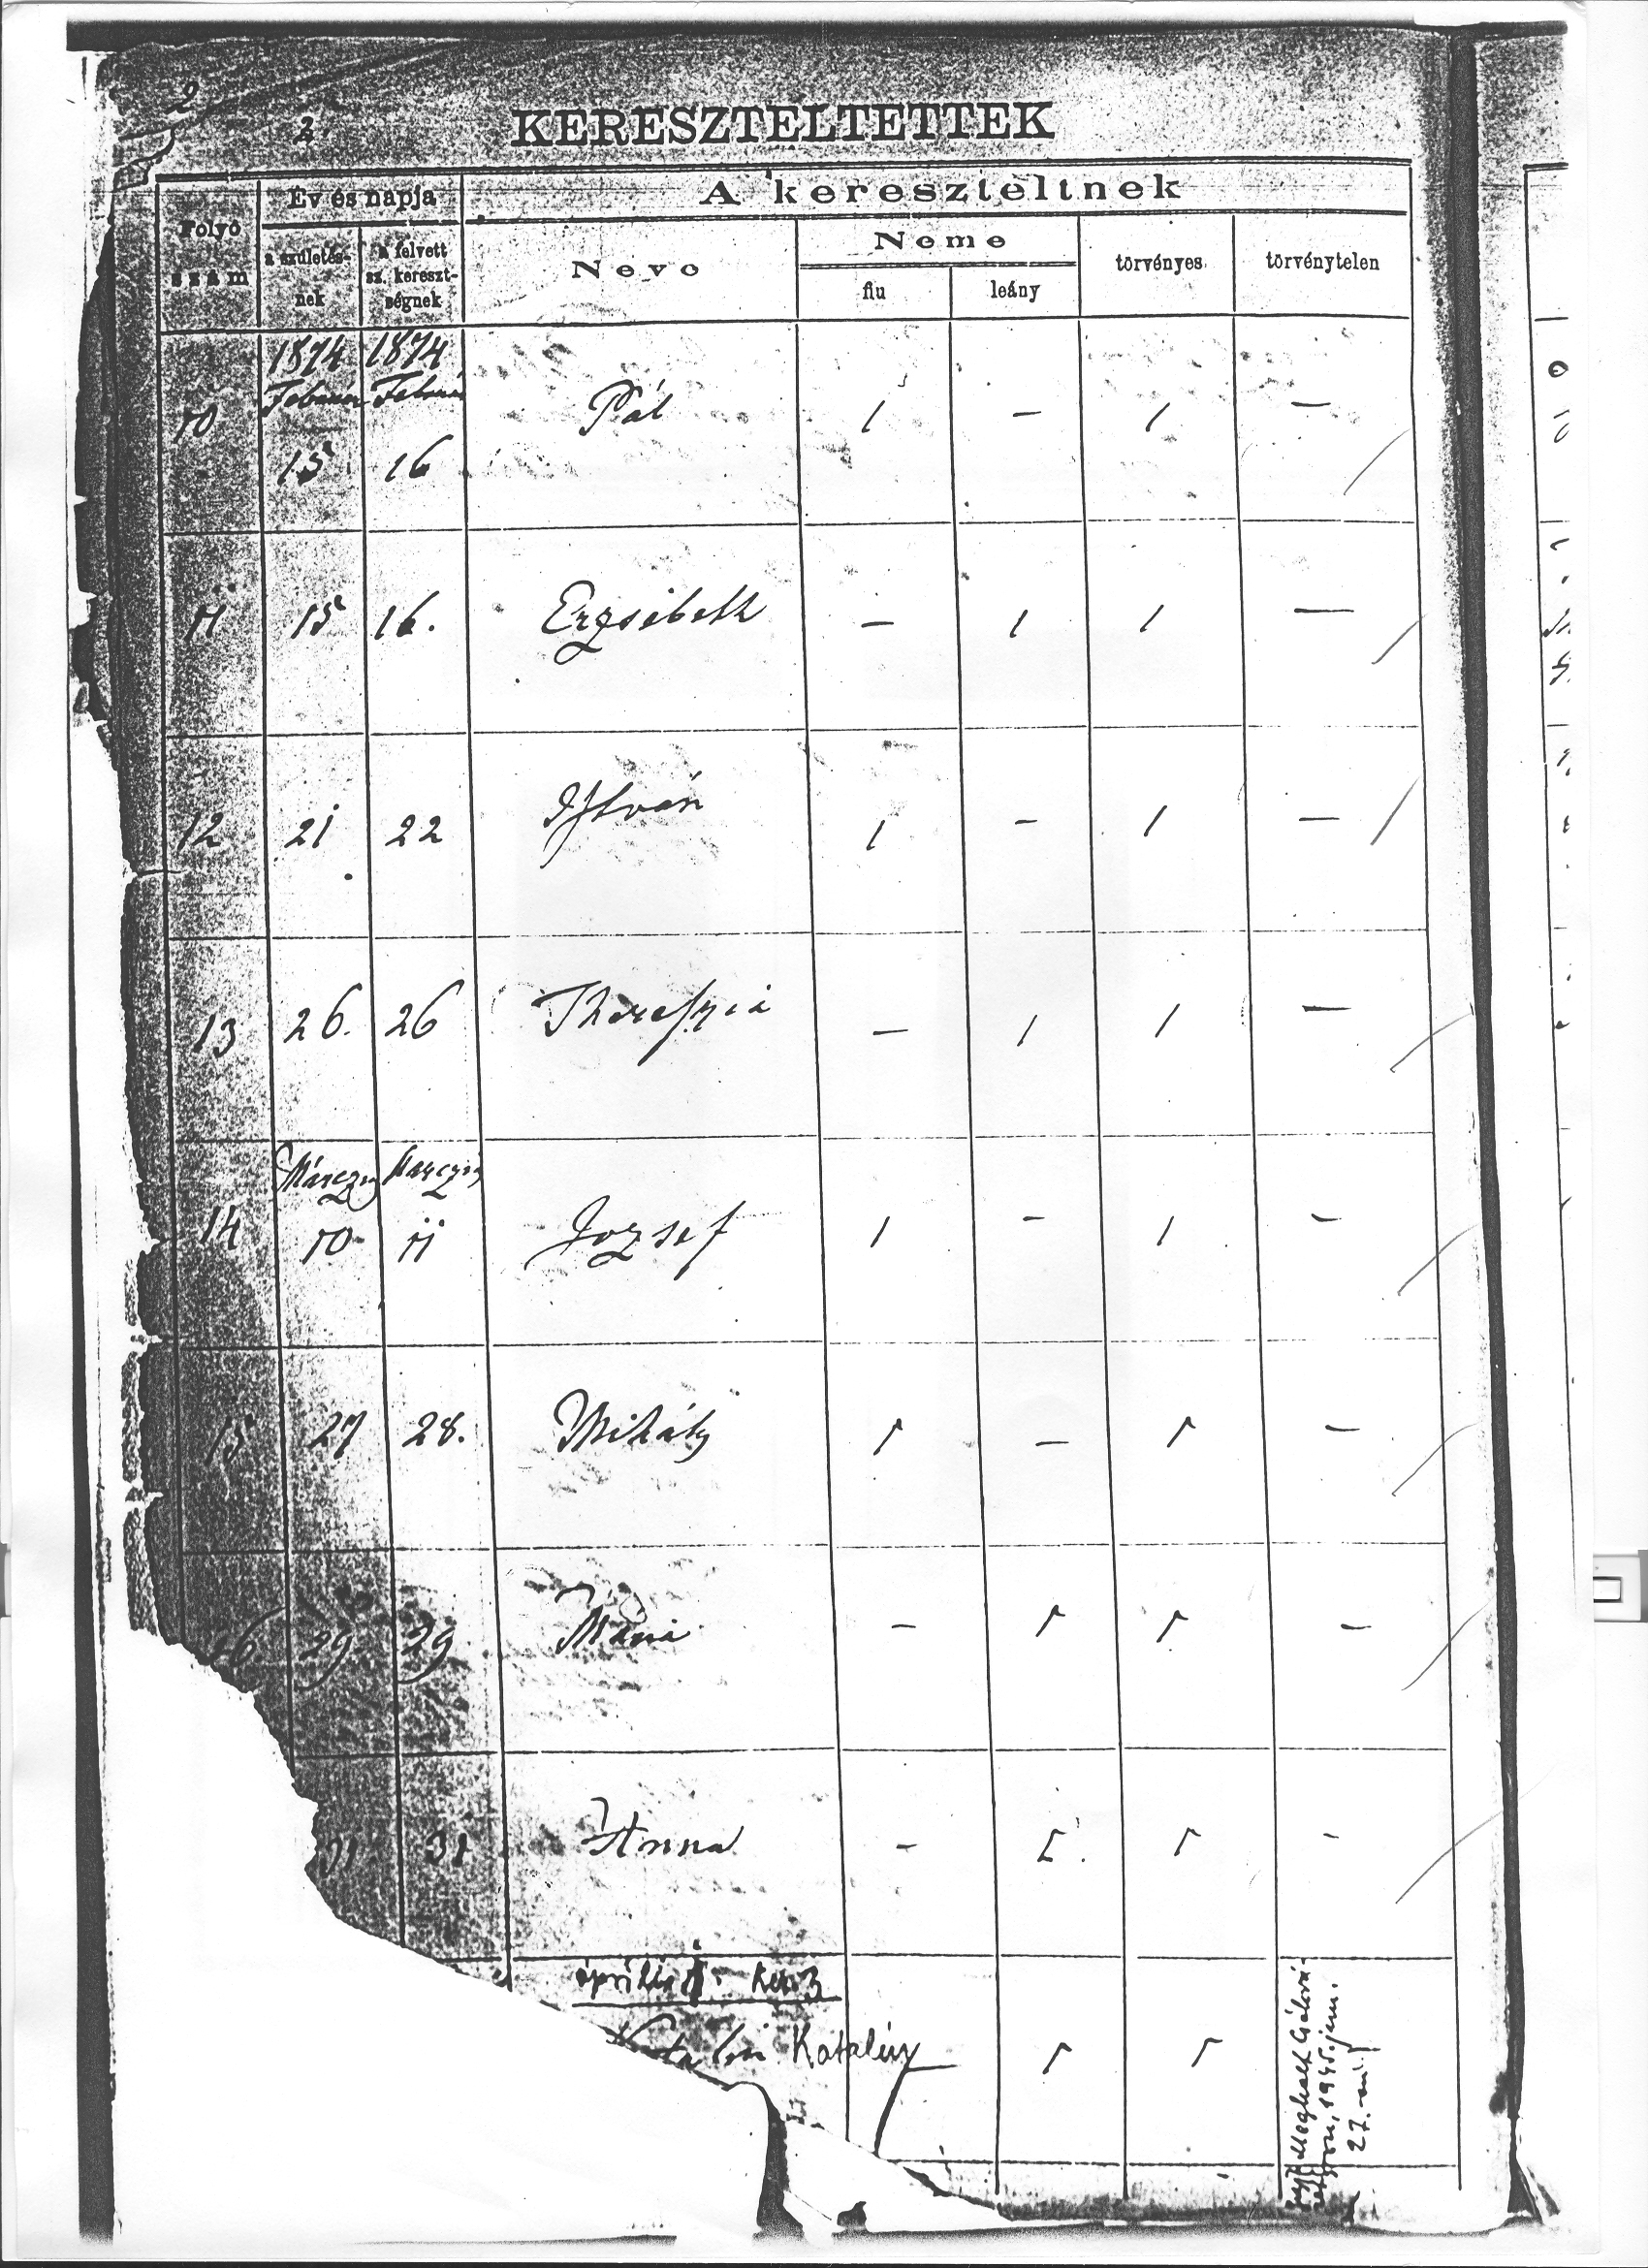 2
2.
KERESZTELTETTEK
Folyó szám
Év és napja
a születés-
nek
a felvett
sz. kereszt-
ségnek
A kereszteltnek
Neve
Neme
fiu
leány
törvényes
törvénytelen
1874 1874
Februar Februar
10 15 16 Pál 1 — 1 —
11 15 16. Erzsébeth — 1 1 —
12 21 22 István 1 — 1 —
13 26. 26 Thereszia — 1 1 —
Márczius Márczius
14 10 11 Jozsef 1 — 1 —
15 27 28. Mihály 1 — 1 —
16. 29 29 Mária — 1 1 —
31 31 Anna — 1. 1 —
április ker. 3
Katalin Katalin 1 1
Meghalt
1945. jun.
27.-én